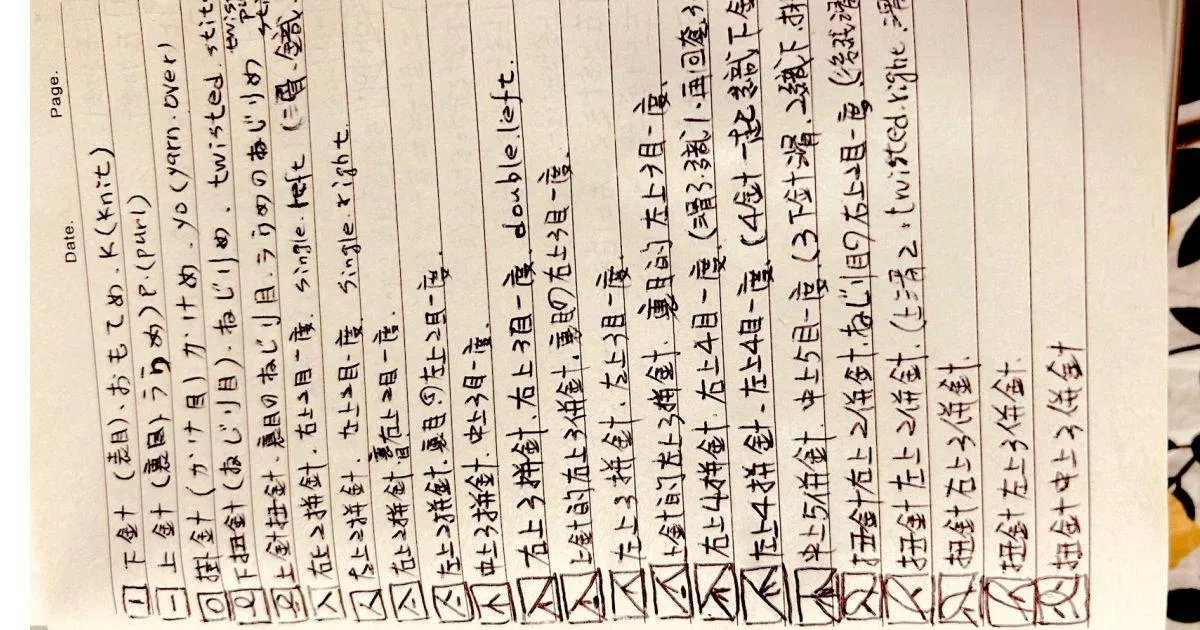 Date.
Page.
下針 (表目). おもてめ. K (knit)
上針 (裏目) うらめ) P. (purl)
掛針 (かけ目) かけめ. yo (yarn.over)
下扭針 (ねじり目). ねじりめ. twisted. stit
上針扭針. 裏目のねじり目. うらめのねじりめ
右上2拼針. 右上2目一度. single.left (三滑.金織.
左上2拼針. 左上2目一度 single.right.
右上2拼針. 裏目右上2目一度.
左上2拼針. 裏目の左上2目一度.
中上3拼針. 中上3目一度.
右上3拼針. 右上3目一度. double.left.
上針的右上3併針. 裏目の右上3目一度.
左上3拼針. 左上3目一度.
上針的左上3拼針. 裏目的左上3目一度.
右上4拼針. 右上4目一度. (滑3. 織1. 再回套3
左上4拼針. 左上4目一度. (4針一起織下金
中上5併針. 中上5目一度. (3下針滑. 2織下. 拼
扭針右上2併針. ねじり目の右上2目一度
扭針左上2併針. (上滑2. twisted.right. 滑
扭針右上3併針.
扭針左上3併針.
扭針中上3併針